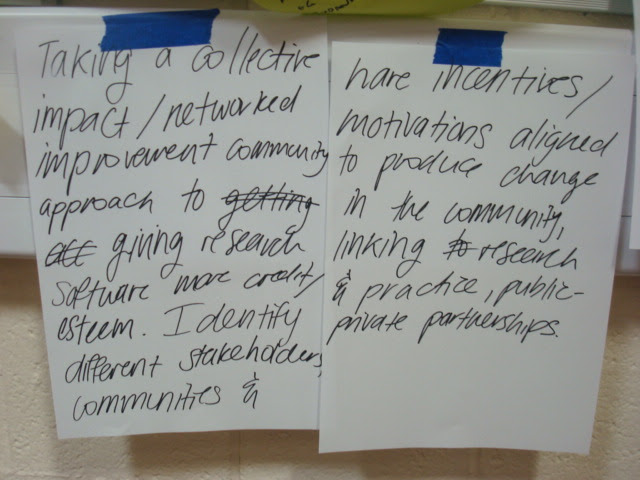 Taking a collective
impact/networked
improvement community
approach to getting
all giving research
software more credit/
esteem. Identify
different stakeholders,
communities &
have incentives/
motivations aligned
to produce change
in the community,
linking to research
& practice, public-
private partnerships.